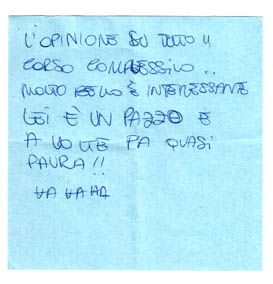 L'OPINIONE SU TUTTO IL
CORSO COMPLESSIVO..
MOLTO BELLO È INTERESSANTE
LEI È UN PAZZO E
A VOLTE FA QUASI
PAURA!!
HA HA HA